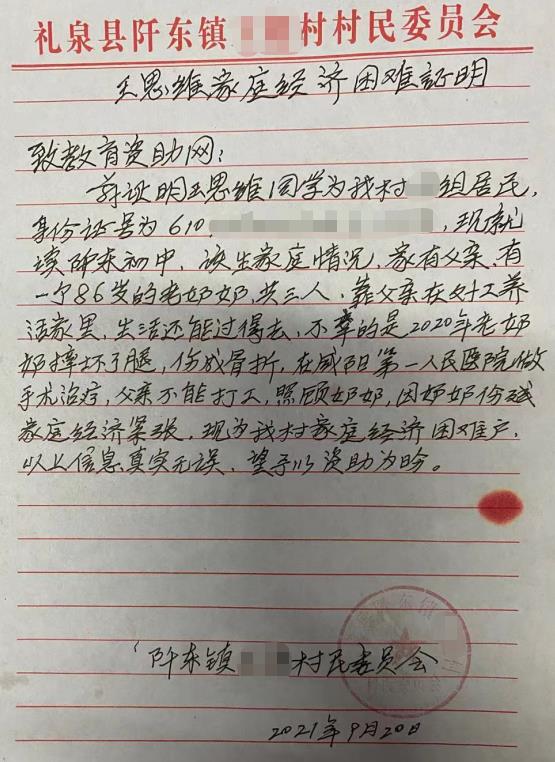 礼泉县阡东镇 村村民委员会
王思维家庭经济困难证明
致教育资助网：
兹证明王思维同学为我村 组居民,
身份证号为610 ,现就
读阡东初中,该生家庭情况,家有父亲,有
一个86岁的老奶奶,共三人,靠父亲在外打工养
活家里,生活还能过得去,不幸的是2020年老奶
奶摔坏了腿,伤成骨折,在咸阳第一人民医院做
手术治疗,父亲不能打工,照顾奶奶,因奶奶伤残
家庭经济紧张,现为我村家庭经济困难户,
以上信息真实无误,望予以资助为盼。
阡东镇 村民委员会
2021年9月20日